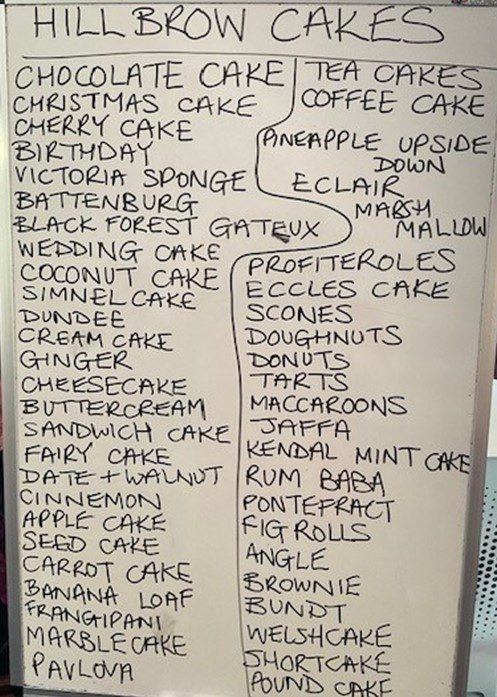 HILL BROW CAKES
CHOCOLATE CAKE
CHRISTMAS CAKE
CHERRY CAKE
BIRTHDAY
VICTORIA SPONGE
BATTENBURG
BLACK FOREST GATEUX
WEDDING CAKE
COCONUT CAKE
SIMNEL CAKE
DUNDEE
CREAM CAKE
GINGER
CHEESECAKE
BUTTERCREAM
SANDWICH CAKE
FAIRY CAKE
DATE + WALNUT
CINNEMON
APPLE CAKE
SEED CAKE
CARROT CAKE
BANANA LOAF
FRANGIPANI
MARBLE CAKE
PAVLOVA
TEA CAKES
COFFEE CAKE
PINEAPPLE UPSIDE
DOWN
ECLAIR
MARSH
MALLOW
PROFITEROLES
ECCLES CAKE
SCONES
DOUGHNUTS
DONUTS
TARTS
MACCAROONS
JAFFA
KENDAL MINT CAKE
RUM BABA
PONTEFRACT
FIG ROLLS
ANGLE
BROWNIE
BUNDT
WELSHCAKE
SHORTCAKE
POUND CAKE